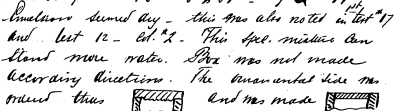 Emulsion seemed dry - this was also noted in 1st test #17
and test 12 - Ed. #2 - This spl. mixture can
stand more water. Box was not made
according directions. The ornamental side was
ordered thus and was made